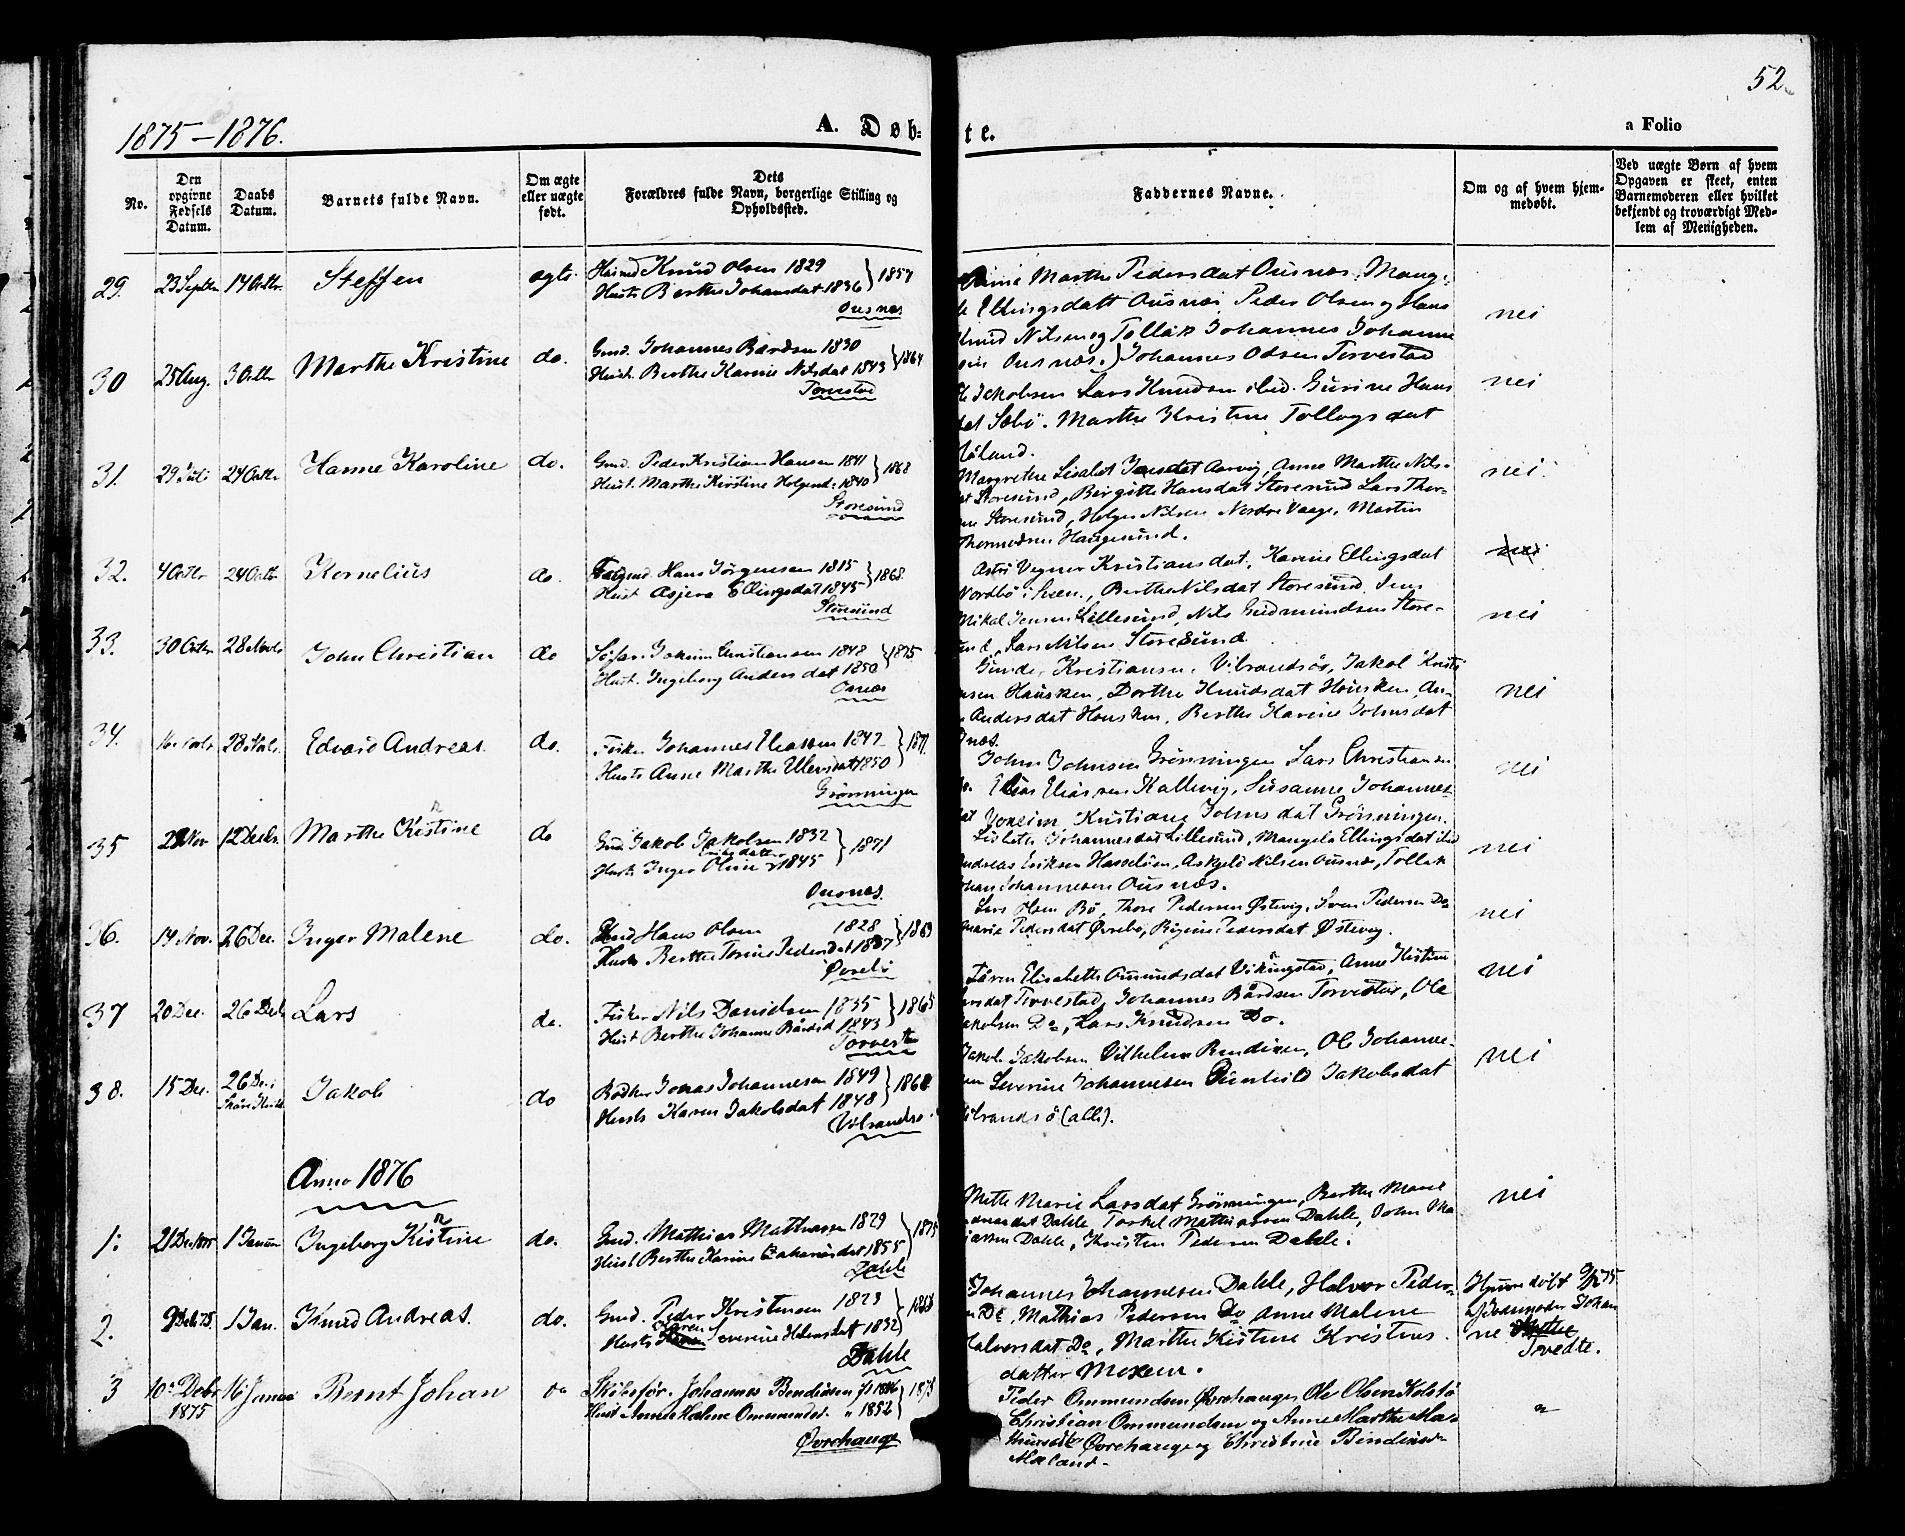 52
1875–1876.
A. Døb-
te.
a Folio
No.
Den opgivne Fødsels Datum.
Daabs Datum.
Barnets fulde Navn.
Om ægte eller uægte født.
Dets Forældres fulde Navn, borgerlige Stilling og Opholdssted.
Faddernes Navne.
Om og af hvem hjemmedøbt.
Ved uægte Børn af hvem Opgaven er skeet, enten Barnemoderen eller hvilket bekjendt og troværdigt Medlem af Menigheden.
29. 23 Septbr 14 Octbr. Steffen ægte
Knud Olsen 1829
Hust. Berthe Johansdat. 1836 } 1857
Ousnæs
Marthe Pedersdat Ousnæs, Mang-
Ellingsdatt Ousnæs Peder Olsen og Hans
Knud Nilsen og Tollak Johannes Johanne
Ousnæs.) Johannes Olsen Torvestad
nei
30 25 Aug. 3 Octbr Marthe Kristine do.
Gmd. Johannes Bardsen 1830
Hust. Berthe Karine Nilsdat 1843 } 1864
Torvestad
Jakobsen Lars Knudsen ibid. Gurine Hans
dat Sæbø. Marthe Kristine Tollagsdat
Håland.
nei
31. 29 Juli 24 Octbr. Hanne Karoline do.
Gmd. Peder Kristian Hansen 1841
Hust. Marthe Kirstine Holgersd. 1840 } 1868
Storesund
Margrethe Lisabet Jensdat Aarvig, Anne Marthe Nils-
dat Storesund, Birgitte Hansdat Storesund Lars Thor-
Storesund, Holger Nilsen Nordre Vaage, Martin
Thormodsen Haugesund.
nei
32. 4 Octbr 24 Octbr. Kornelius do.
Hans Jørgensen 1815
Hust Asjera Ellingsdat 1845 } 1868.
Storesund
Astri Vegner Kristiansdat, Karine Ellingsdat
Nordbø i Skaen., Berthe Nilsdat Storesund. Jens
Mikal Jensen Lillesund, Nils Gudmundsen Store-
sund, Lars Nilsen Storesund
nei
33. 30 Octbr. 28 Novbr John Christian do
Joakim Christiansen 1848
Hust. Ingeborg Andersdat 1850 } 1875
Ousnæs
Kristiansen. Vibrandsø, Jakob Kristi
ansen Hausken, Dorthe Knudsdat Housken, An-
Andersdat Housken, Berthe Karine Johnsdat
nei
34. 28 Novbr. Edvard Andreas. do.
Fisker Johannes Eliassen 1847
Hust. Anne Marthe Ulevsdat 1850
Grønningen
John Johnsen Grønningen Lars Christiansen
do. Elias Eliassen Kallevig, Susanne Johannes-
dat Kristiane Johnsdat Grønningen.
nei
35 Nov 12 Decbr. Marthe Kristine do
Gmd. Jakob Jakobsen 1832
Hust. Inger Oline Eriksdatter 1845 } 1871
Ousnæs
Lisbeth Johannesdat Lillesund, Mangela Ellingsdat ibid
Andreas Eriksen Hasseløen, Askjeld Nilsen Ousnæs, Tollak
Johan Johannesen Ousnæs.
nei
36. 14 Nov. 26 Dec. Inger Malene do.
Gmd Hans Olsen 1828
Hust. Berthe Torine Pedersdat 1837 } 1863
Øvrebø
Lars Olsen Bø, Thore Pedersen Østevig, Sven Pedersen Do
Marie Pedersdat Øvrebø, Pedersdat Østevig.
nei
37 20 Dec. 26 Decbr Lars do.
Fisker Nils Danielsen 1835
Hust Berthe Johanne Bårdsd. 1843 } 1865
Torvestad
Elisabeth Amundsdat Vikingstad, Anne Kistine
Larsdat Torvestad, Johannes Bårdsen Torvestad, Ole
Jakobsen Do, Lars Knudsen Do.
nei
38. 15 Dec. 26 Dec. Jakob do
Bødker Jonas Johannesen 1849
Hust. Karen Jakobsdat 1848
Vibrandsø
Jakob Jakobsen Vilhelm Bendixen, Ole Johanne-
sen Severine Johannesen Gunhild Jakobsdat
Vibrandsø (alle).
nei
Anno 1876
1: 21 1 Januar Ingeborg Kristine do.
Gmd. Mathias Mathiassen 1829
Hust Berthe Karine Zakariasdat 1855 } 1875
Dahle
Mette Marie Larsdat Grønningen, Berthe Marie
Dahle, Torkel Mathiassen Dahle, John Ma
tiassen Dahle, Kristen Pedersen Dahle.
nei
2. 9 Deb 75. 1 Jan. Knud Andreas. do.
Gmd. Peder Kristensen 1823
Hust. Karen Severine Helvorsdat 1832
Dahle
Johannes Johannesen Dahle, Halvor Peder-
sen Do, Mathias Pedersen Do Anne Malene
Halvorsdat Do, Marthe Kistine Kristens-
datter Moxen.
Hjemmedøbt 75
Johan
ne Tvedte.
3 10 Debr 1875 16 Januar Bernt Johan do
Johannes Bendixsen 1846
Hust Anne Malene Ommundsd. " 1852
Øvrehauge
Peder Ommundsen Øvrehauge, Ole Olsen Kolstø
Christian Ommundsen og Anne Marthe Ma-
Øvrehauge og Christine Bendixsd.
Maland.
"